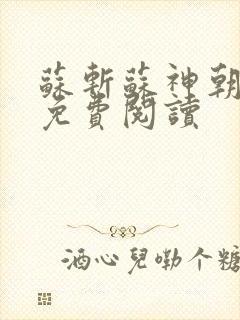 蘇斬蘇神朝
免費閱讀
酒心兒嘞个糖